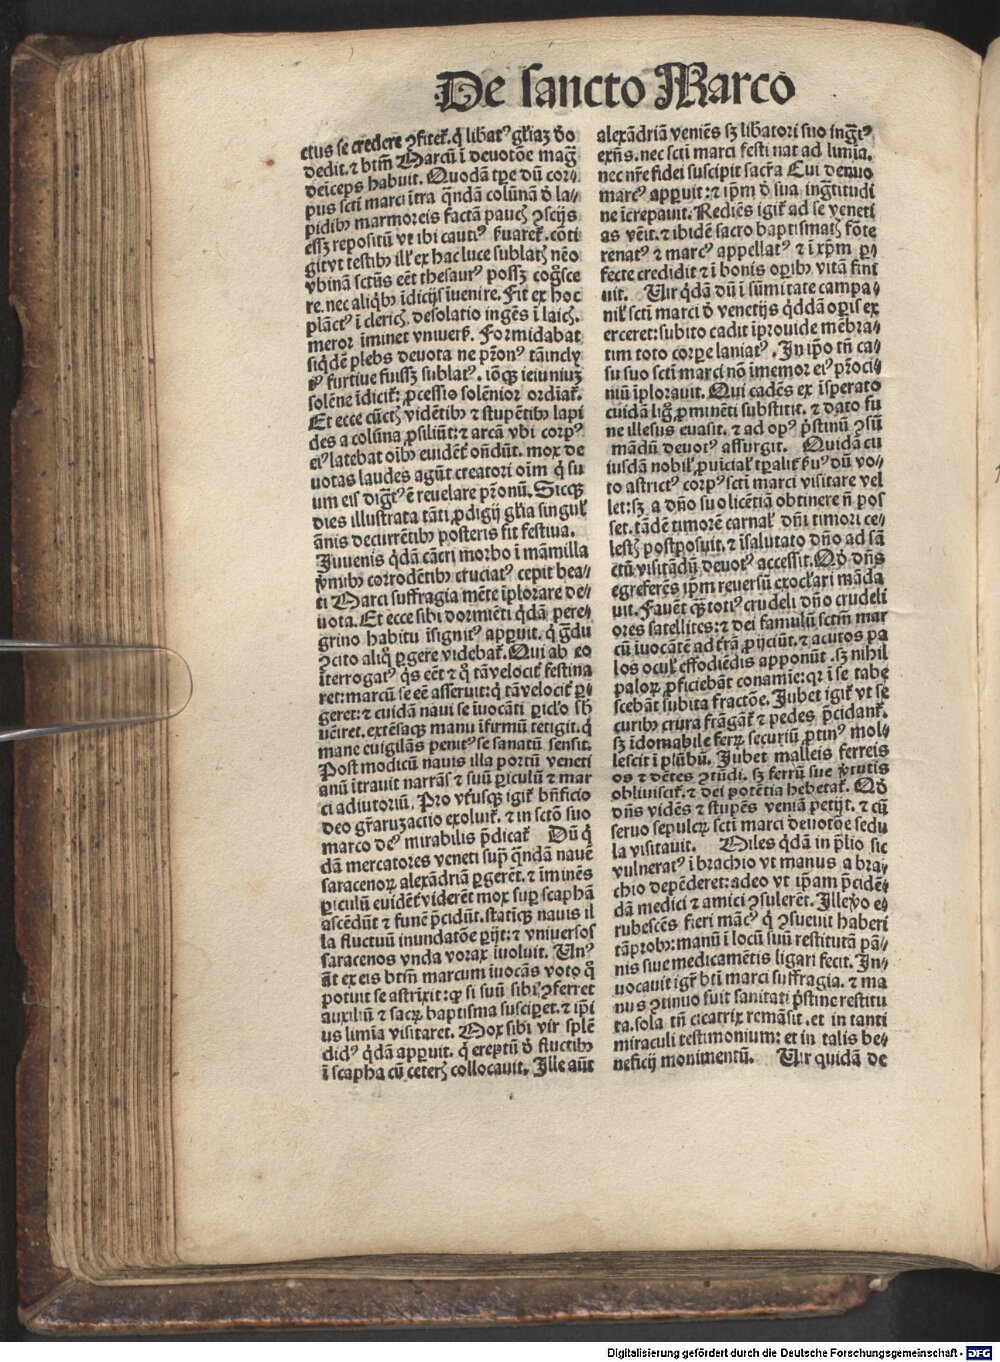 De sancto Marco
ctus se credere ꝯfitet̃. q̇ lib̃atꝰ gl̃iaȝ d̕o
dedit. ⁊ btm̃ Marcũ ĩ deuotõe mag̃
deĩceps habuit. Quodã tp̃e dũ cor⸗
pus scti marci ĩtra qñdã colũnã d̕ la⸗
pidibꝰ marmoreis factã paucꝭ ꝯscijs
eſſȝ repositũ vt ibi cautiꝰ ẜuaret̃. cõti
git vt testibꝰ illꝭ ex hac luce sublatꝭ nẽo
vbinã sctũs eẽt thesaurꝰ posſȝ cog̃sce
re. nec aliqbꝰ ĩdicijs ĩuenire. Fit ex hoc
plãctꝰ ĩ clericꝭ. desolatio ingẽs ĩ laicꝭ.
meror ĩminet vniuerſ. Formidabat
siqdẽ plebs deuota ne pr̃onꝰ tã indy
tꝰ furtiue fuiſſȝ sublatꝰ. iõqȝ ieiuniuȝ
solẽne ĩdicit̃: ꝓcessio solẽnior ordĩat̃.
Et ecce cũctꝭ vidẽtibꝰ ⁊ stupẽtibꝰ lapi
des a colũna ꝓsiliũt: ⁊ arcã vbi corpꝰ
eiꝰ latebat oĩbꝰ euidẽt̃ oñdũt. mox de
uotas laudes agũt creatori oĩm q̇ su
um eis dig̃tꝰ ẽ reuelare pr̃onũ. Sicqȝ
dies illustrata tãti ꝓdigij gl̃ia singulꝭ
ãnis decurrẽtibꝰ posteris fit festiua.
Juuenis q̇dã cãcri morbo ĩ mãmilla
v̕mibꝰ corrodẽtibꝰ cruciatꝰ cepit bea⸗
ti Marci suffragia mẽte ĩplorare de⸗
uota. Et ecce sibi dormiẽti q̇dã pere⸗
grino habitu ĩsignitꝰ apꝑuit. q̇ g̃du
ꝯcito aliq̊ ꝑgere videbat̃. Qui ab eo
ĩterrogatꝰ q̇s eẽt ⁊ q̊ tã velocit̃ festina
ret: marcũ se eẽ asseruit: q̇ tã velocit̃ ꝑ⸗
geret: ⁊ cuidã naui se ĩuocãti ꝑicl̃o sb̕
uẽiret. extẽsaqȝ manu ĩfirmũ tetigit. q̇
mane euigilãs penitꝰ se sanatũ sensit.
Post modicũ nauis illa portũ veneti
anũ ĩtrauit narrãs ⁊ suũ ꝑiculũ ⁊ mar
ci adiutoriũ. Pro vtͥusqȝ igit̃ bñficio
deo gr̃aruȝ actio exoluit̃. ⁊ in sctõ suo
marco deꝰ mirabilis p̃dicat̃ Dũ q̇
dã mercatores veneti sup̃ qñdã nauẽ
saracenoꝝ alexãdriã ꝑgerẽt. ⁊ ĩminẽs
ꝑiculũ euidẽt̃ viderẽt mox sup̃ scaphã
ascẽdũt ⁊ funẽ p̃cidũt. statĩqȝ nauis il
la fluctuũ inundatõe ꝑijt: ⁊ vniuersos
saracenos vnda vorax ĩuoluit. Vnꝰ
aũt ex eis btm̃ marcum ĩuocãs voto q̊
potuit se astrĩxit: qꝙ si suũ sibi ꝯferret
auxiliũ ⁊ sacꝝ baptisma susciꝑet. ⁊ ip̃i
us limĩa visitaret. Mox sibi vir splẽ
didꝰ q̇dã apꝑuit. q̇ ereptũ d̕ fluctibꝰ
ĩ scapha cũ ceterꝭ collocauit. Ille aũt
alexãdriã veniẽs sȝ lib̃atori suo ing̃tꝰ
exñs. nec scti marci festinat ad limĩa.
nec nr̃e fidei suscipit sacr̃a Cui denuo
marcꝰ apꝑuit: ⁊ ip̃m d̕ sua ing̃titudi
ne ĩcrepauit. Rediẽs igit̃ ad se veneti
as vẽit. ⁊ ibidẽ sacro baptismatꝭ fõte
renatꝰ ⁊ marcꝰ appellatꝰ ⁊ ĩ xp̃m ꝑ⸗
fecte credidit ⁊ ĩ bonis oꝑibꝰ vitã fini
uit. Vir q̇dã dũ ĩ sũmitate campa⸗
nilꝭ scti marci d̕ venetijs q̇ddã oꝑis ex
erceret: subito cadit ĩprouide mẽbra⸗
tim toto corꝑe laniatꝰ. In ip̃o tñ ca⸗
su suo scti marci nõ ĩmemor eiꝰ pr̃oci⸗
niũ ĩplorauit. Qui cadẽs ex ĩsperato
cuidã lig̊ ꝓminẽti substitit. ⁊ dato fu
ne illesus euasit. ⁊ ad opꝰ p̃stinũ ꝯsũ
mãdũ deuotꝰ assurgit. Quidã cu
iusdã nobilꝭ ꝓuĩcialꝭ tꝑalit̃ ẜuꝰ dũ vo⸗
to astrictꝰ corpꝰ scti marci visitare vel
let: sȝ a dño suo licẽtiã obtinere ñ pos
set. tãdẽ timorẽ carnalꝭ dñi timori ce⸗
lestꝭ postposuit. ⁊ ĩsalutato dño ad sã
ctũ visitãdũ deuotꝰ accessit. Qd̕ dñs
egreferẽs ip̃m reuersũ exocl̃ari mãda
uit. Fauẽt qȝ totiꝰ crudeli dño crudeli
ores satellites: ⁊ dei famulũ sctm̃ mar
cũ ĩuocãtẽ ad t̃rã ꝓijciũt. ⁊ acutos pa
los oculꝭ effodiẽdis apponũt. sȝ nihil
paloꝝ ꝓficiebãt conamĩe: qꝛ ĩ se tabe
scebãt subita fractõe. Jubet igit̃ vt se
curibꝰ crura frãgãt̃ ⁊ pedes p̃cidant̃.
sȝ ĩdomabile ferꝝ securiũ ꝓtinꝰ mol⸗
lescit ĩ plũbũ. Jubet malleis ferreis
os ⁊ dẽtes ꝯtũdi. sȝ ferrũ sue v̕tutis
obliuiscit̃. ⁊ dei potẽtia hebetat̃. Qd̕
dñs vidẽs ⁊ stupẽs veniã petijt. ⁊ cũ
seruo sepulcꝝ scti marci deuotõe sedu
la visitauit. Miles q̇dã in p̃lio sic
vulneratꝰ ĩ brachio vt manus a bra⸗
chio depẽderet: adeo vt ip̃am p̃cidẽ⸗
dã medici ⁊ amici ꝯsulerẽt. Ille v̊o e⸗
rubescẽs fieri mãcꝰ q̇ ꝯsueuit haberi
tã probꝰ: manũ ĩ locũ suũ restitutã pã⸗
nis siue medicamẽtis ligari fecit. In⸗
uocauit igr̃ bti marci suffragia. ⁊ ma
nus ꝯtinuo fuit sanitati p̃stine restitu
ta. sola tñ cicatrix remãsit. et in tanti
miraculi testimonium: et in talis be⸗
neficij monimentũ. Vir quidã de
Digitalisierung gefördert durch die Deutsche Forschungsgemeinschaft - DFG